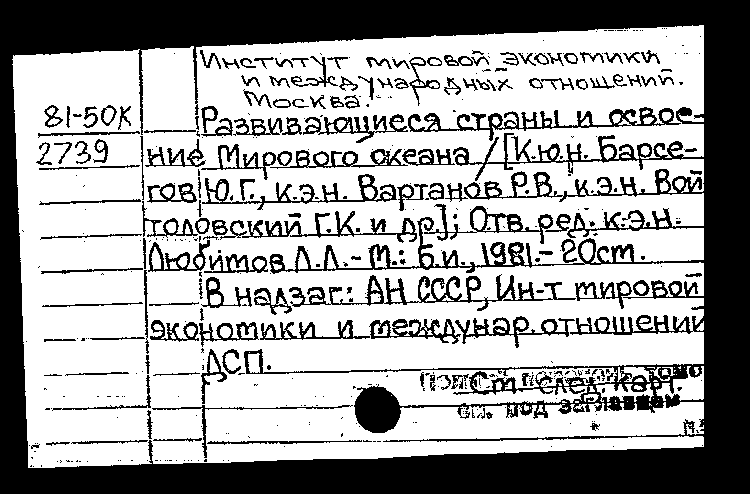 Институт мировой экономики
и международных отношений.
Москва.
81-50К Развивающиеся страны и освое-
2739 ние Мирового океана / [К.ю.н. Барсе-
гов Ю.Г., к.э.н. Вартанов Р.В., к.э.н. Вой
толовский Г.К. и др.]; Отв. ред. к.э.н.
Любимов Л.Л. - М.: б.и., 1981. - 20 ст.
В надзаг.: АН СССР, Ин-т мировой
экономики и междунар. отношений
ДСП.
См. след. карт.
см. под заглавием